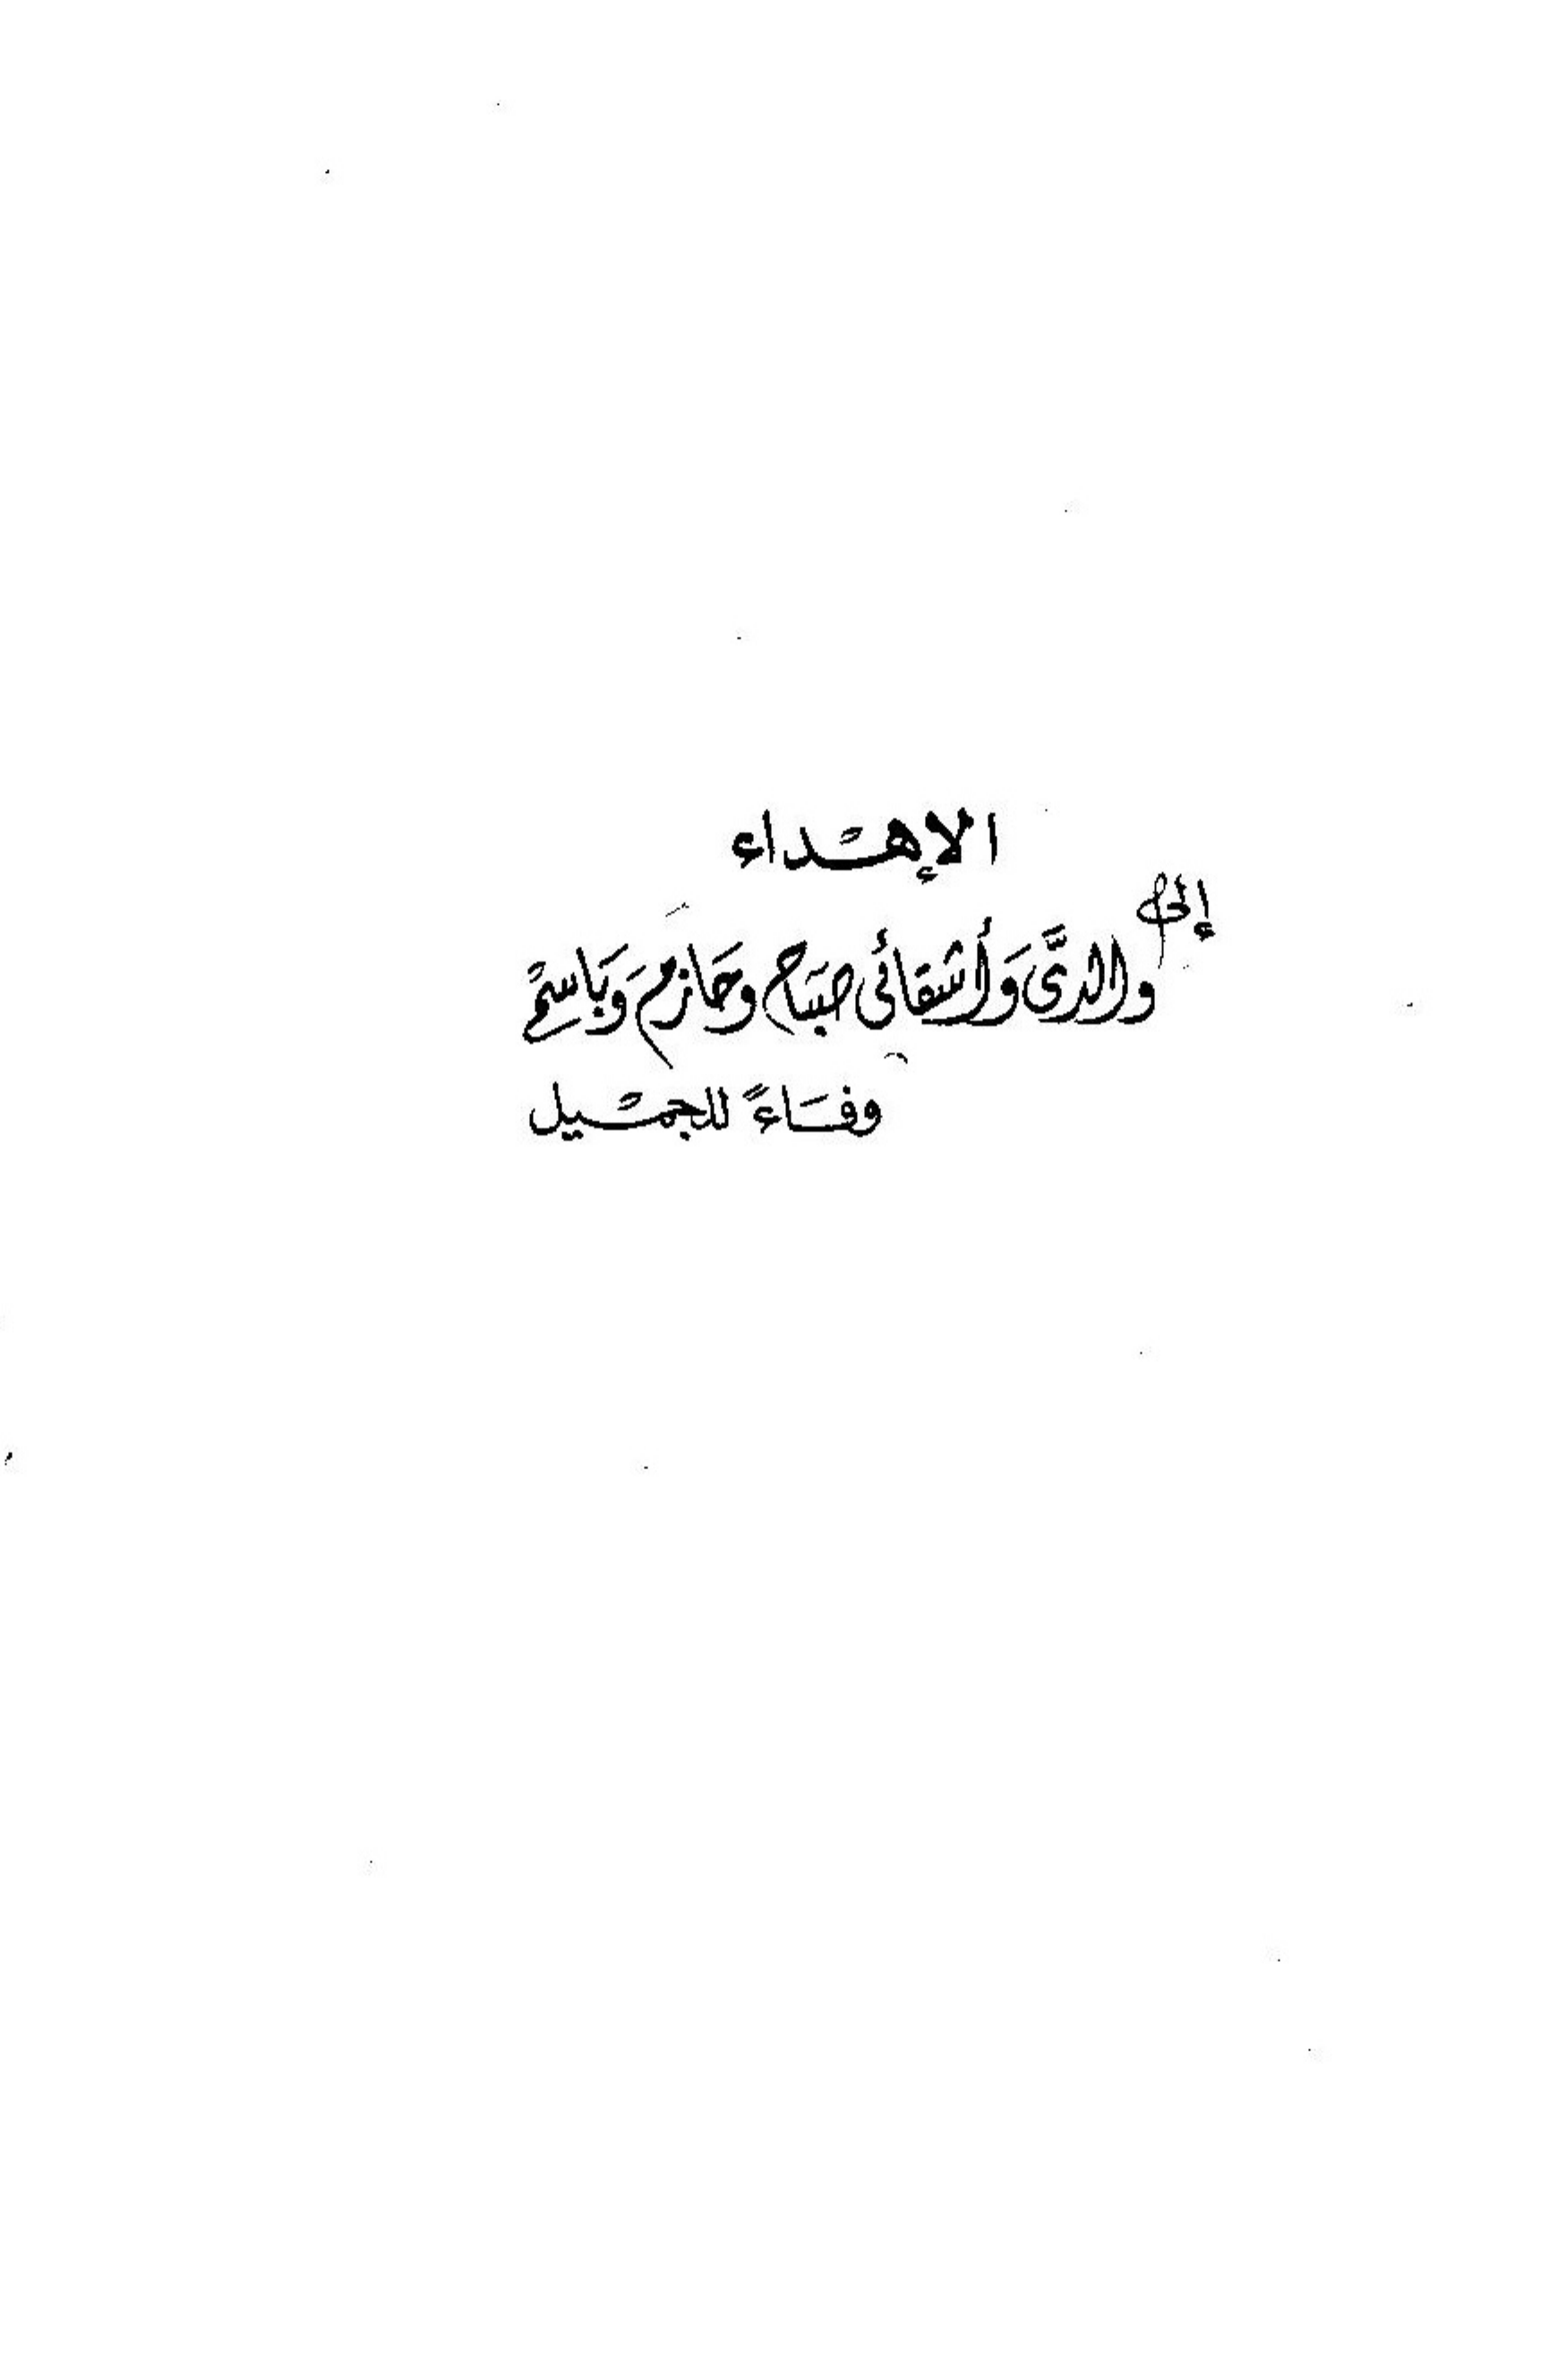 الإهداء
إلى
والدىَّ وَأشقائى صبَاح وحَازم وَبَاسِم
وفاءً للجميل